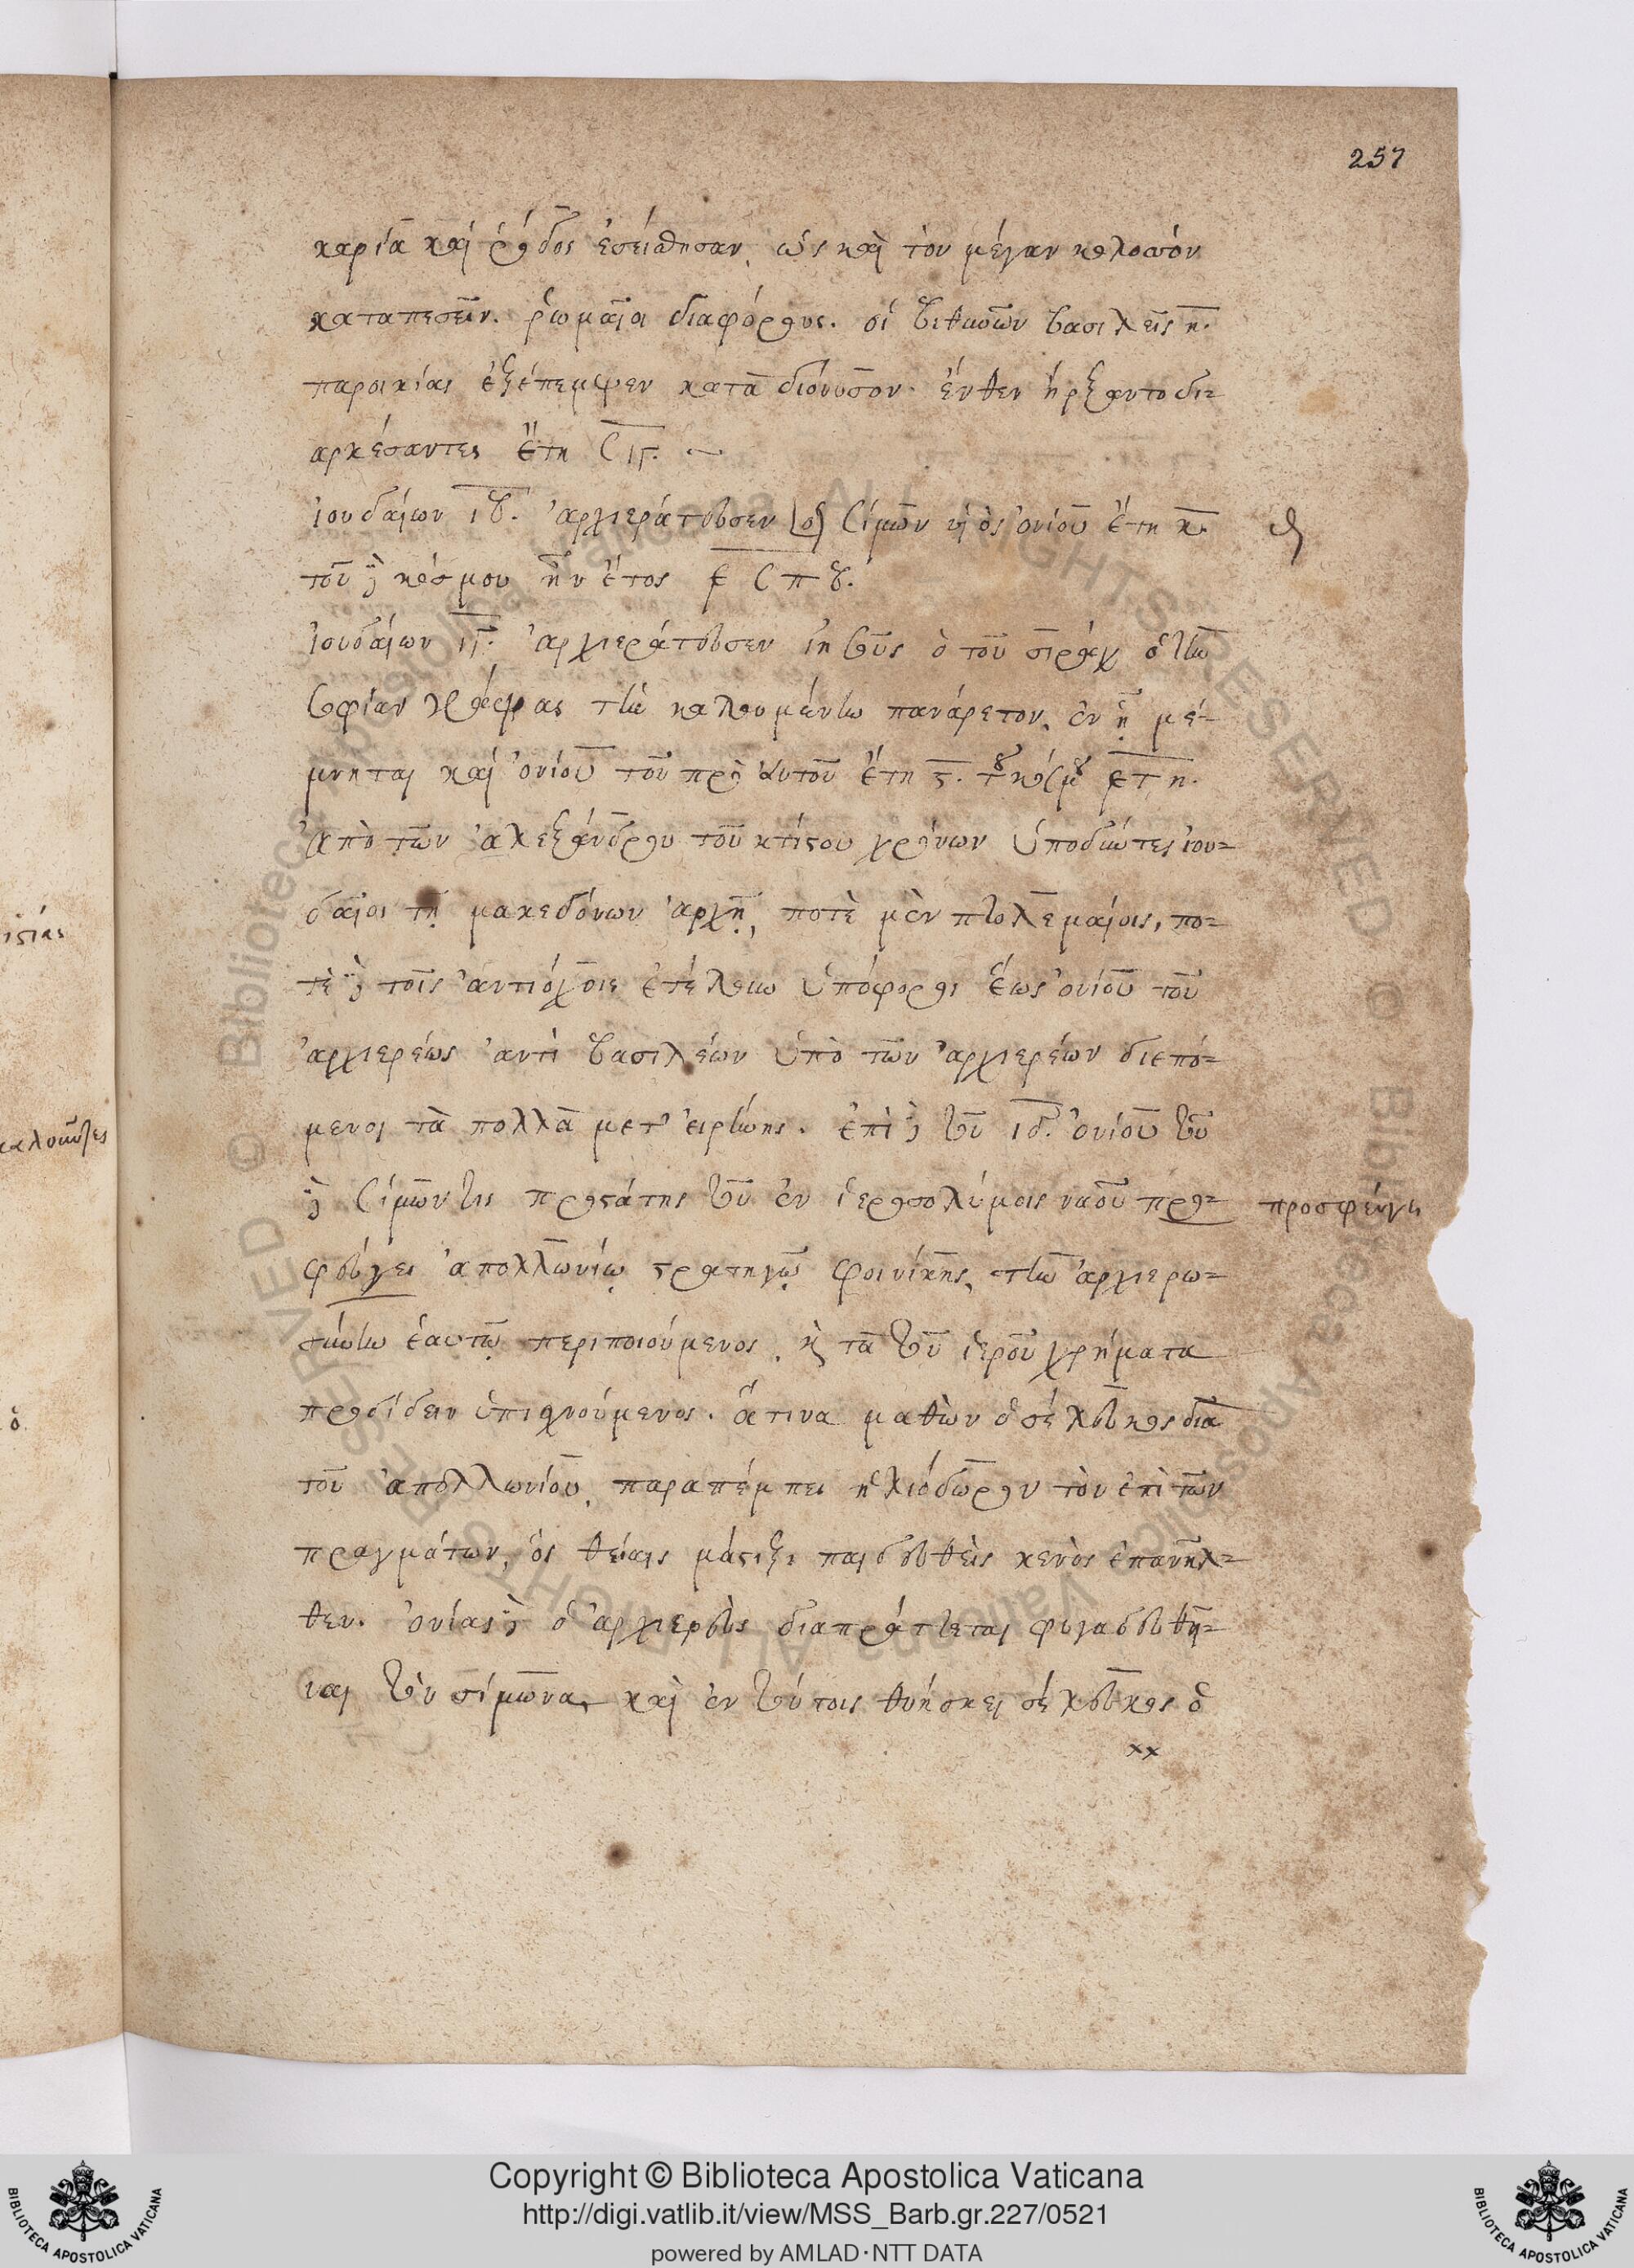 257
καρία καὶ ῥόδος ἐσείσθησαν, ὡς καὶ τὸν μέγαν κολοσσὸν
καταπεσεῖν. ῥωμαῖοι διαφόρους. οἱ βιθυνῶν βασιλεῖς η.
παροικίας ἐξέπεμψεν κατὰ διόνυσον. ἔνθεν ἤρξαντο δι-
αρκέσαντες ἔτη σιγ.
ἰουδαίων ιβ. ἀρχιεράτευσεν Σίμων υἱὸς ὀνίου ἔτη κ.
τοῦ δὲ κόσμου ἦν ἔτος ͵εσπβ.
ἰουδαίων ιγ. ἀρχιεράτευσεν ἰησοῦς ὁ τοῦ σιράχ ὁ τὴν
σοφίαν γράψας τὴν καλουμένην πανάρετον, ἐν ᾗ μέ-
μνηται καὶ ὀνίου τοῦ πρὸ αὐτοῦ ἔτη ϛ. τοῦ κόσμου ͵ετη.
ἀπὸ τῶν ἀλεξάνδρου τοῦ κτίστου χρόνων ὑποδύντες ἰου-
δαῖοι τῇ μακεδόνων ἀρχῇ, ποτὲ μὲν πτολεμαίοις, πο-
τὲ δὲ τοῖς ἀντιόχοις ἐτέλουν ὑπόφοροι ἕως ὀνίου τοῦ
ἀρχιερέως ἀντὶ βασιλέων ὑπὸ τῶν ἀρχιερέων διεπό-
μενοι τὰ πολλὰ μετ' εἰρήνης. ἐπὶ δὲ τοῦ ιδ. ὀνίου τοῦ
δὲ Σίμων τις προστάτης τοῦ ἐν ἱεροσολύμοις ναοῦ προσ- προσφεύγει
φεύγει ἀπολλωνίῳ στρατηγῷ φοινίκης, τὴν ἀρχιερω-
σύνην ἑαυτῷ περιποιούμενος, καὶ τὰ τοῦ ἱεροῦ χρήματα
προδίδειν ὑπισχνούμενος. ἅτινα μαθὼν ὁ σέλευκος διὰ
τοῦ ἀπολλωνίου, παραπέμπει ἡλιόδωρον τὸν ἐπὶ τῶν
πραγμάτων, ὃς θείαις μάστιξι παιδευθεὶς κενὸς ἐπανῆλ-
θεν. ὀνίας δὲ ὁ ἀρχιερεὺς διαπράττεται φυγαδευθῆ-
ναι τὸν σίμωνα, καὶ ἐν τούτοις θνήσκει σέλευκος ὁ
xx
Copyright © Biblioteca Apostolica Vaticana
http://digi.vatlib.it/view/MSS_Barb.gr.227/0521
powered by AMLAD·NTT DATA